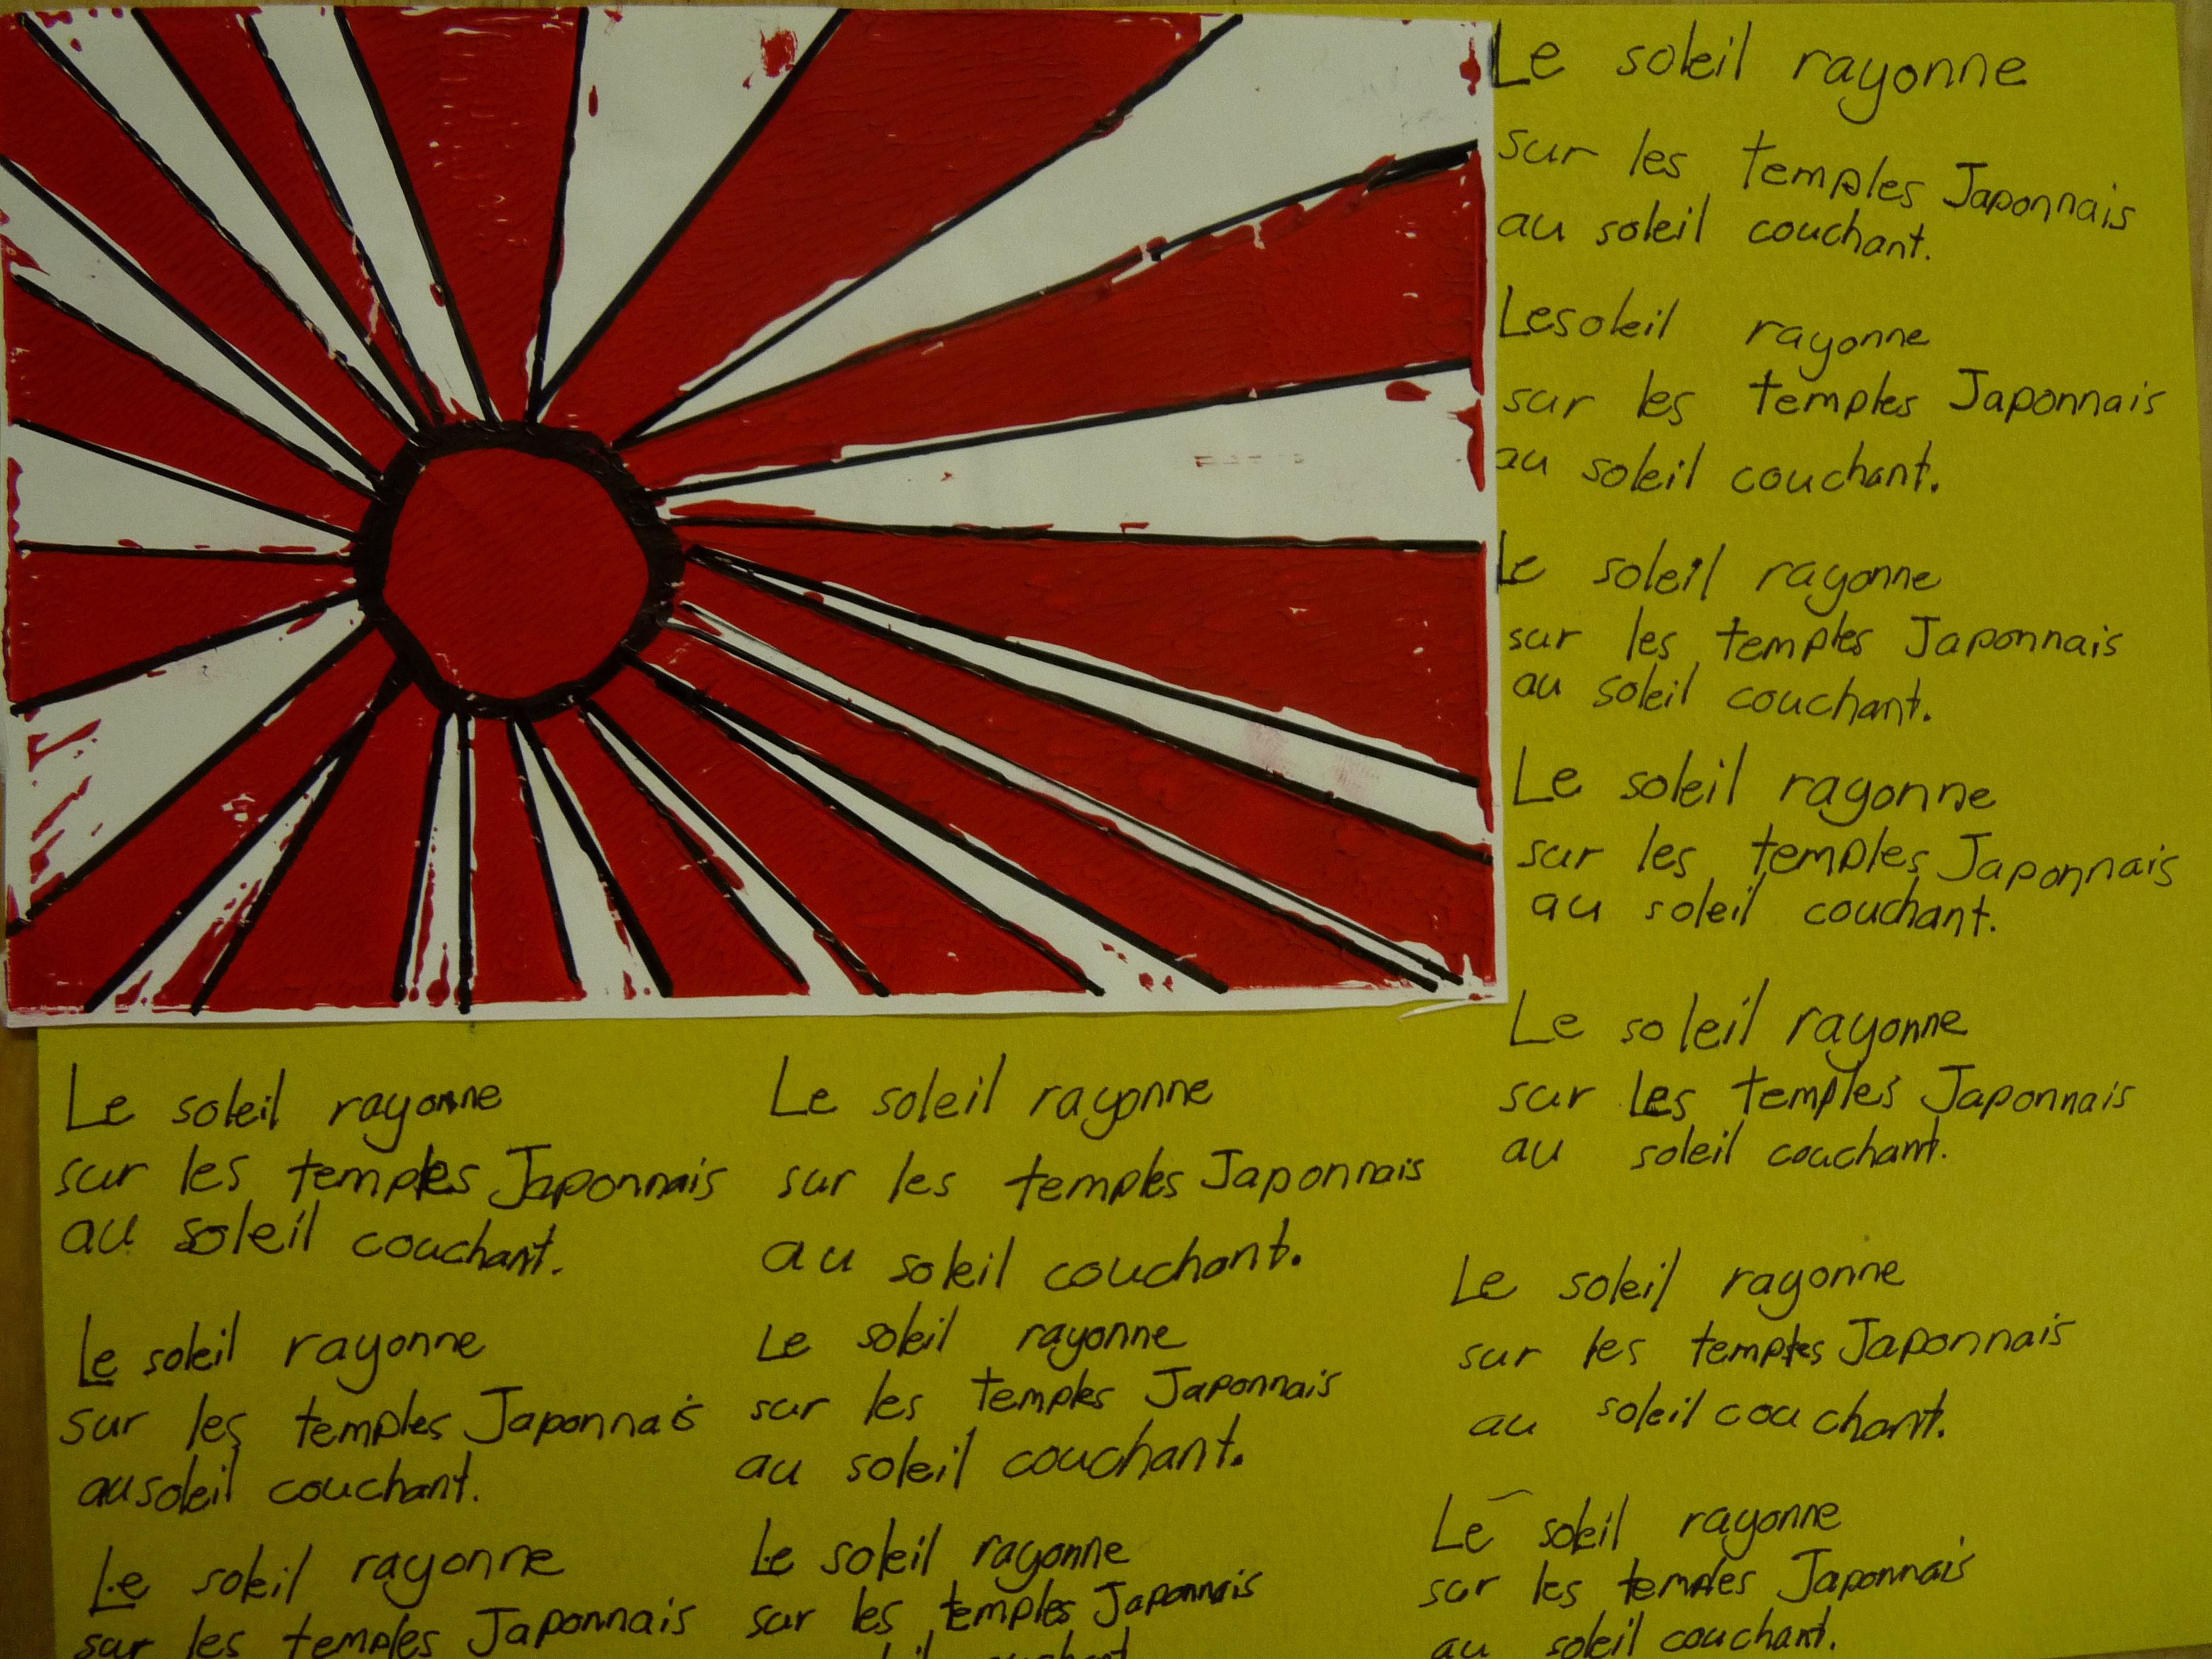 Le soleil rayonne
sur les temples Japonnais
au soleil couchant.
Lesoleil rayonne
sur les temples Japonnais
au soleil couchant.
Le soleil rayonne
sur les temples Japonnais
au soleil couchant.
Le soleil rayonne
sur les temples Japonnais
au soleil couchant.
Le soleil rayonne
sur les temples Japonnais
au soleil couchant.
Le soleil rayonne
sur les temples Japonnais
au soleil couchant.
Le soleil rayonne
sur les temples Japonnais
au soleil couchant.
Le soleil rayonne
sur les temples Japonnais
au soleil couchant.
Le soleil rayonne
sur les temples Japonnais
ausoleil couchant.
Le soleil rayonne
sur les temples Japonnais
Le soleil rayonne
sur les temples Japonnais
au soleil couchant.
Le soleil rayonne
sur les temples Japonnais
au soleil couchant.
Le soleil rayonne
sur les temples Japonnais